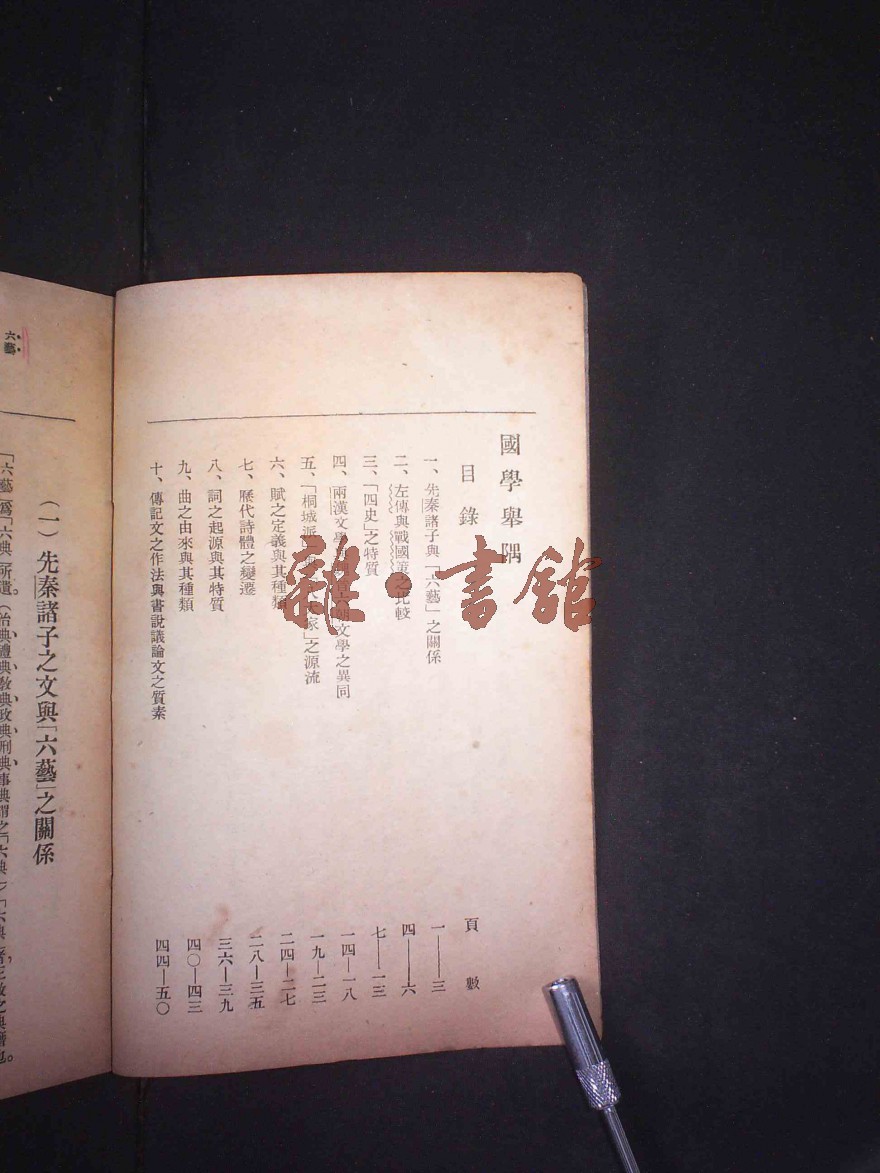 國學舉隅
目錄
頁數
一、先秦諸子與「六藝」之關係 一—三
二、左傳與戰國策之比較 四—六
三、「四史」之特質 七—一三
四、兩漢文學 朝文學之異同 一四—一八
五、「桐城派」 大家」之源流 一九—二三
六、賦之定義與其種類 二四—二七
七、歷代詩體之變遷 二八—三五
八、詞之起源與其特質 三六—三九
九、曲之由來與其種類 四〇—四三
十、傳記文之作法與書說議論文之質素 四四—五〇
雜·書館
六藝
(一)先秦諸子之文與「六藝」之關係
「六藝」爲「六典」所遺。(治典禮典教典政典刑典事典謂之「六典」)「六典」者